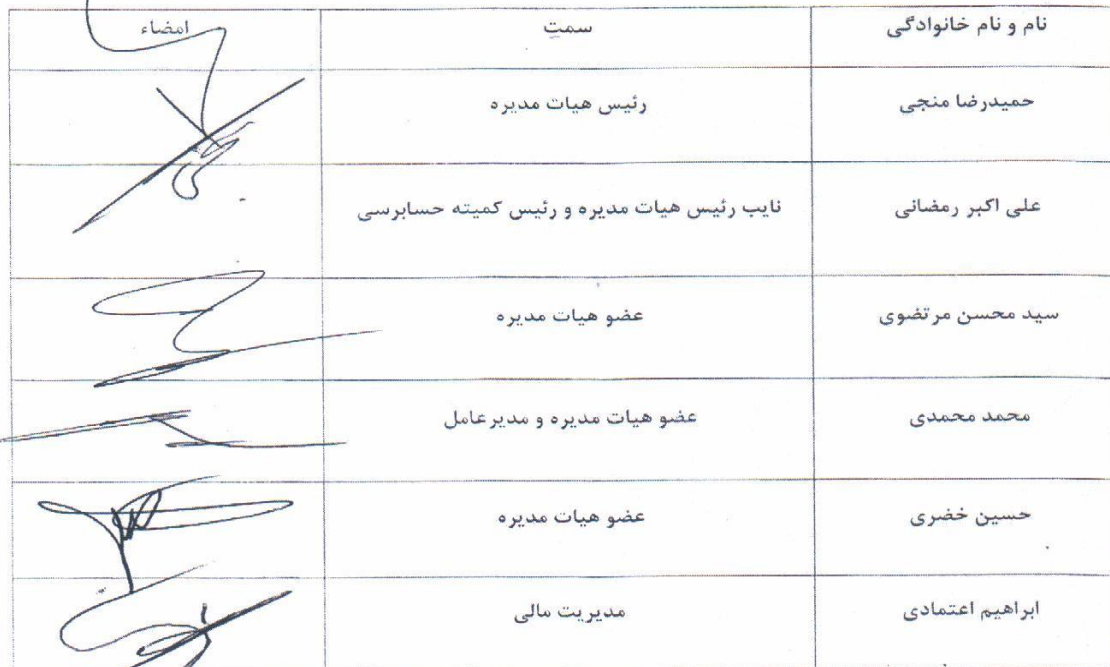 نام و نام خانوادگی سمت امضاء
حمیدرضا منجی رئیس هیات مدیره
علی اکبر رمضانی نایب رئیس هیات مدیره و رئیس کمیته حسابرسی
سید محسن مرتضوی عضو هیات مدیره
محمد محمدی عضو هیات مدیره و مدیرعامل
حسین خضری عضو هیات مدیره
ابراهیم اعتمادی مدیریت مالی